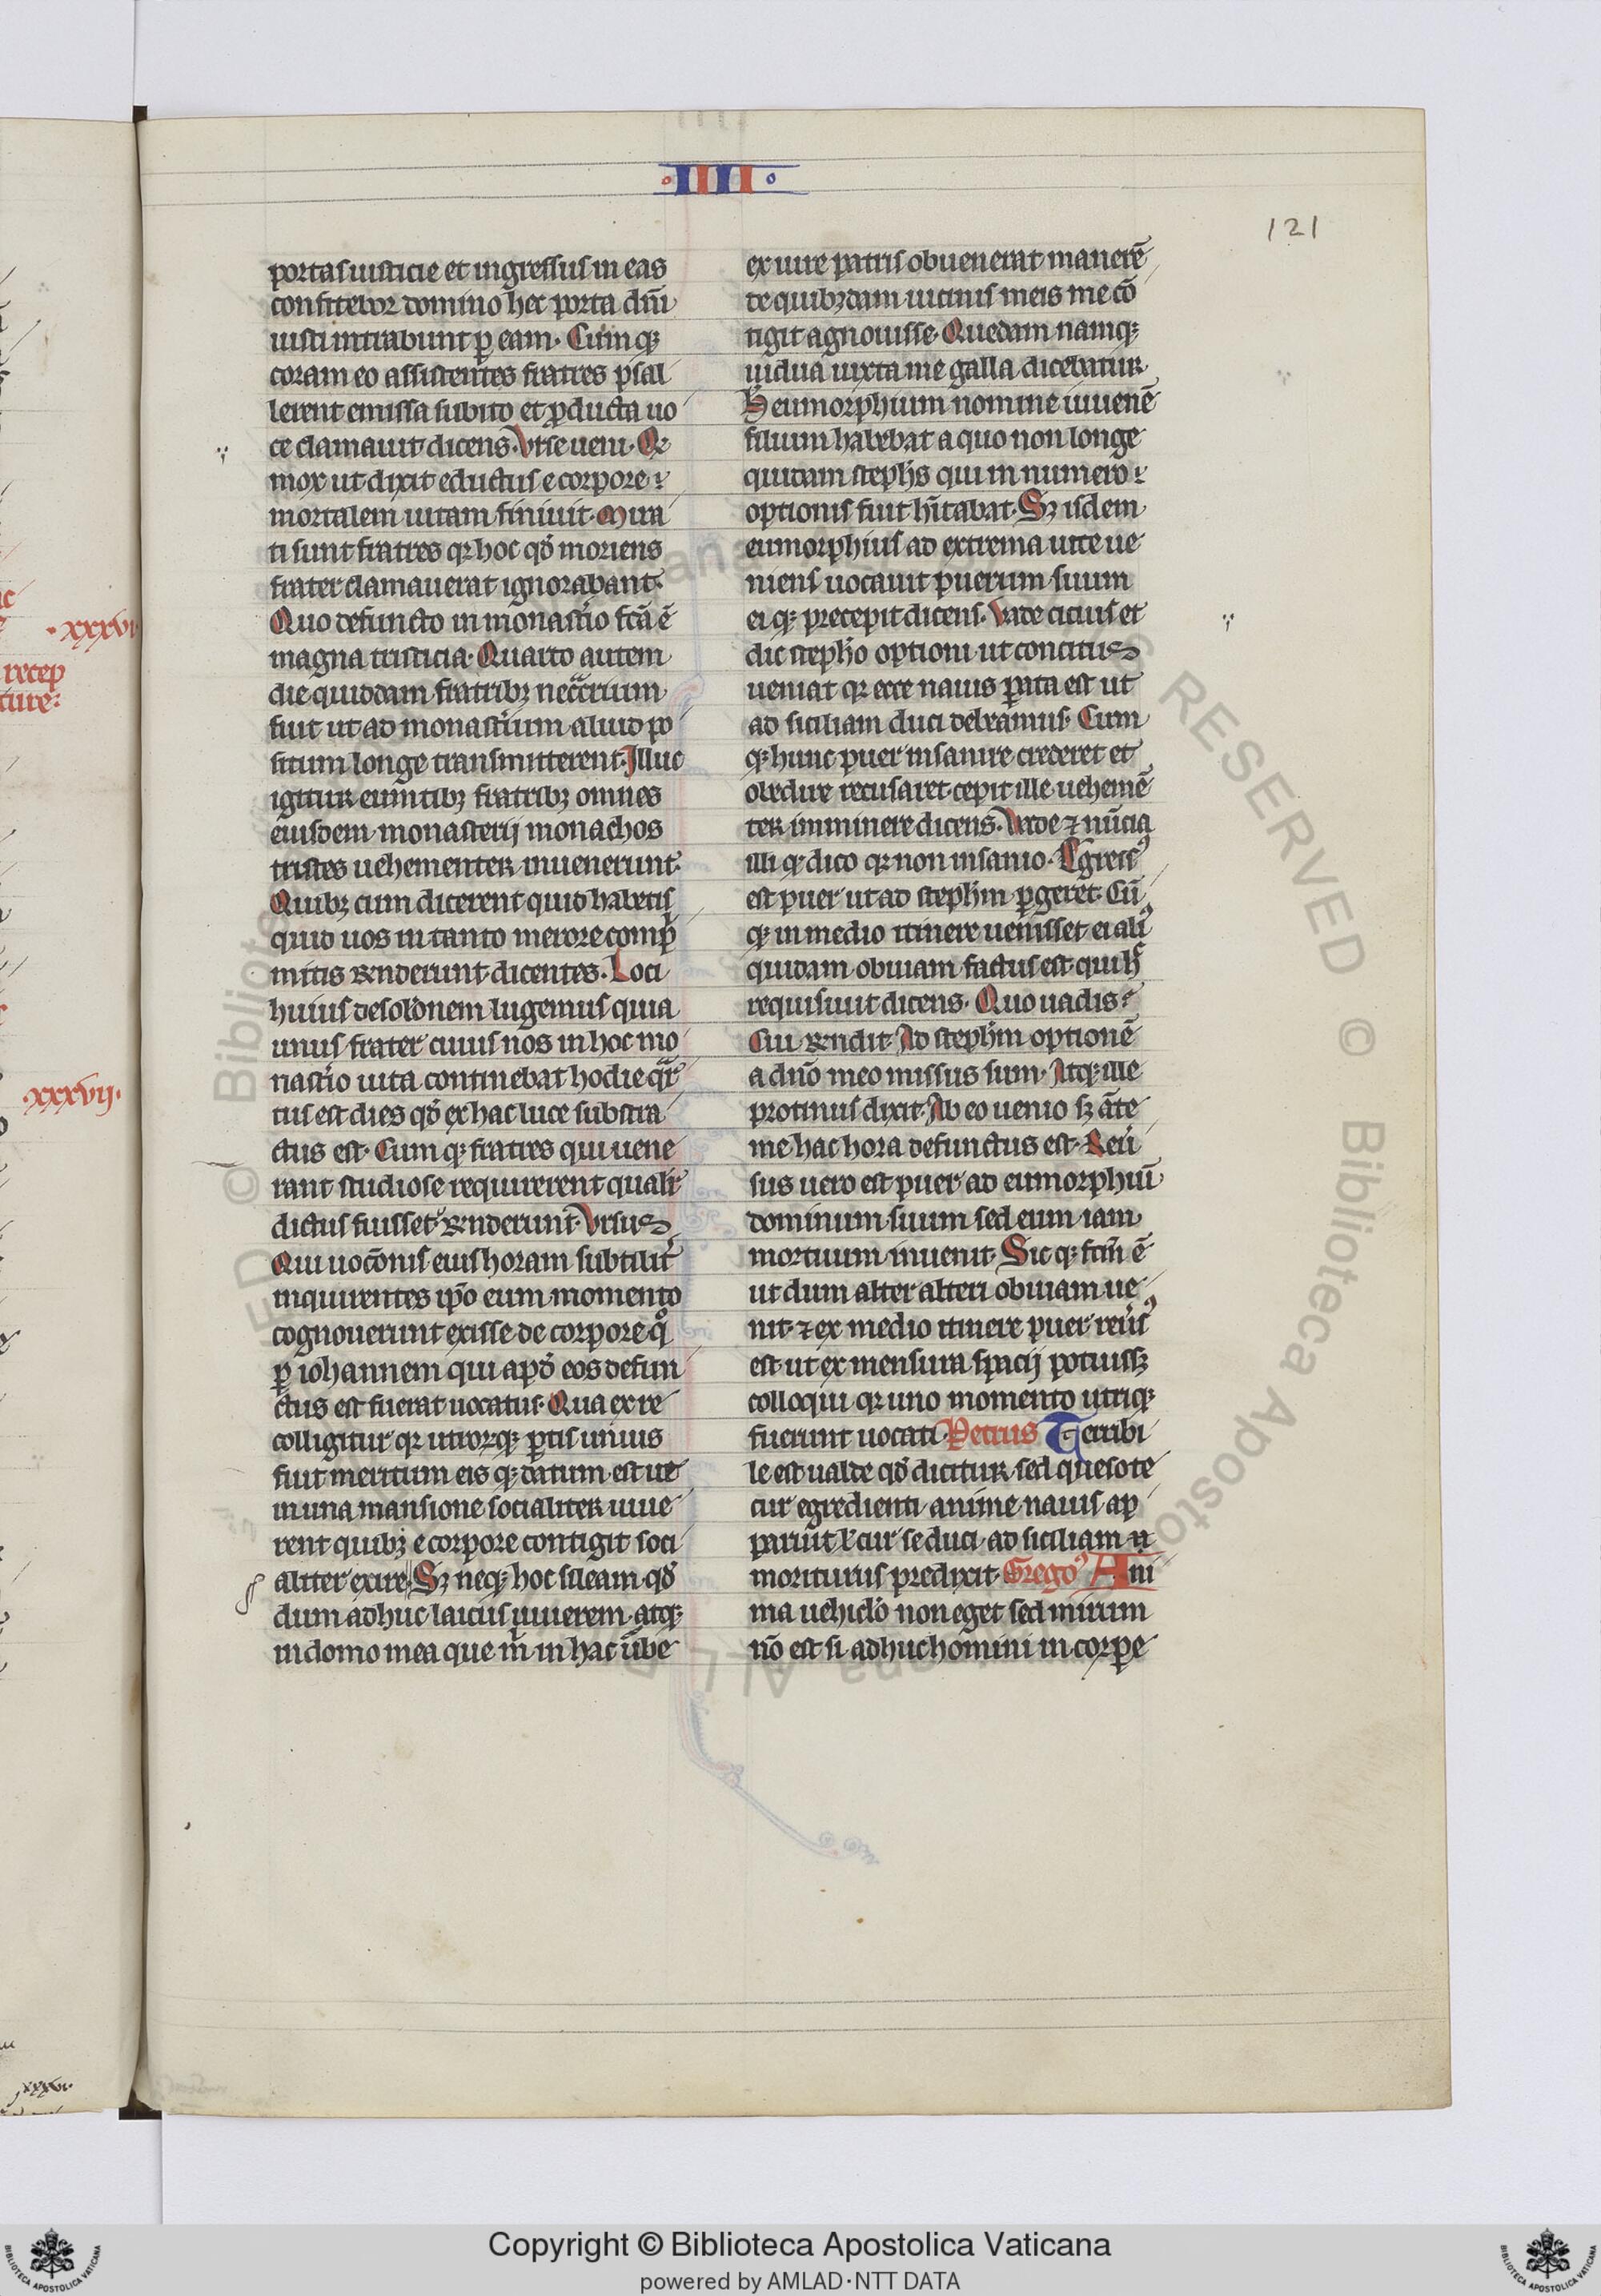 IIII
121
portas iusticie et ingressus in eas
confitebor domino hec porta dñi
iusti intrabunt ꝑ eam. Cumqꝫ
coram eo assistentes fratres psal
lerent emissa subito et ꝓducta uo
ce clamauit dicens. Vrse ueni. Qi
mox ut dixit eductus e corpore
mortalem uitam finiuit. Mira
ti sunt fratres qꝛ hoc qđ moriens
frater clamauerat ignorabant.
Quo defuncto in monastio fcã ẽ
magna tristicia. Quarto autem
die quibdam fratribꝫ neccarium
fuit ut ad monastium aliud po
situm longe transmitterent. Illuc
igitur euntibꝫ fratribꝫ omnes
eiusdem monasterij monachos
tristes uehementer inuenerunt.
Quibꝫ cum dicerent quid habetis
quid uos in tanto merore comp
mitis rñderunt dicentes. Loci
huius desolõnem lugemus quia
unus frater cuius nos in hoc mo
nastio uita continebat hodie qr
tus est dies qđ ex hac luce substra
ctus est. Cumqꝫ fratres qui uene
rant studiose requirerent qualit
dictus fuisset rñderunt. Vrsus
Qui uocõnis eius horam subtilit
inquirentes ipõ eum momento
cognouerunt exisse de corpore qº
ꝑ iohannem qui apđ eos defun
ctus est fuerat uocatus. Qua ex re
colligitur qꝛ utrorqꝫ ꝑtis unius
fuit meritum eisqꝫ datum est ut
in una mansione socialiter uiue
rent quibꝫ e corpore contigit soci
aliter exire. Sꝫ neqꝫ hoc sileam qđ
dum adhuc laicus uiuerem atqꝫ
in domo mea que m̃ in hac ũbe
ex iure patris obuenerat manerẽ
de quibꝫdam uicinis meis me cõ
tigit agnouisse. Quedam namqꝫ
uidua iuxta me galla dicebatur
H eumorphium nomine iuuenẽ
filium habebat a quo non longe
quidam stephs qui in numero
optionis fuit hitabat. Sꝫ isdem
eumorphius ad extrema uite ue
niens uocauit puerum suum
eiqꝫ precepit dicens. Vade cicius et
dic stepho optioni ut concitus
ueniat qꝛ ecce nauis ꝑata est ut
ad siciliam duci debeamus. Cum
qꝫ hunc puer insanire crederet et
obedire recusaret cepit ille uehemẽ
ter imminere dicens. Vade ⁊ nũcia
illi qđ dico qꝛ non insanio. Egressꝰ
est puer ut ad stephm ꝑgeret. Cũ
qꝫ in medio itinere uenisset ei aliꝰ
quidam obuiam factus est qui h
requisiuit dicens. Quo uadis?
Cui rñdit. Ad stephm optionẽ
a dño meo missus sum. Atqꝫ ille
protinus dixit. Ab eo uenio sꝫ ãte
me hac hora defunctus est. Reũ
sus uero est puer ad eumorphiũ
dominum suum sed eum iam
mortuum inuenit. Sicqꝫ fcm̃ ẽ
ut dum alter alteri obuiam ue
nit ⁊ ex medio itinere puer reũsꝰ
est ut ex mensura spacij potuissꝫ
colloqui qꝛ uno momento utriqꝫ
fuerunt uocati. Petrus Terribi
le est ualde qđ dicitur sed queso te
cur egredienti anime nauis ap
paruit ł cur se duci ad siciliam
moriturus predixit. Gregoꝰ Ani
ma uehiclo non eget sed mirum
nõ est si adhuc homini in corpe
xxxvi
recep
ture:
.xxxvij.
xxxvi
© Biblioteca Apostolica Vaticana ALL RIGHTS RESERVED
Copyright © Biblioteca Apostolica Vaticana
powered by AMLAD·NTT DATA
BIBLIOTECA APOSTOLICA VATICANA
BIBLIOTECA APOSTOLICA VATICANA